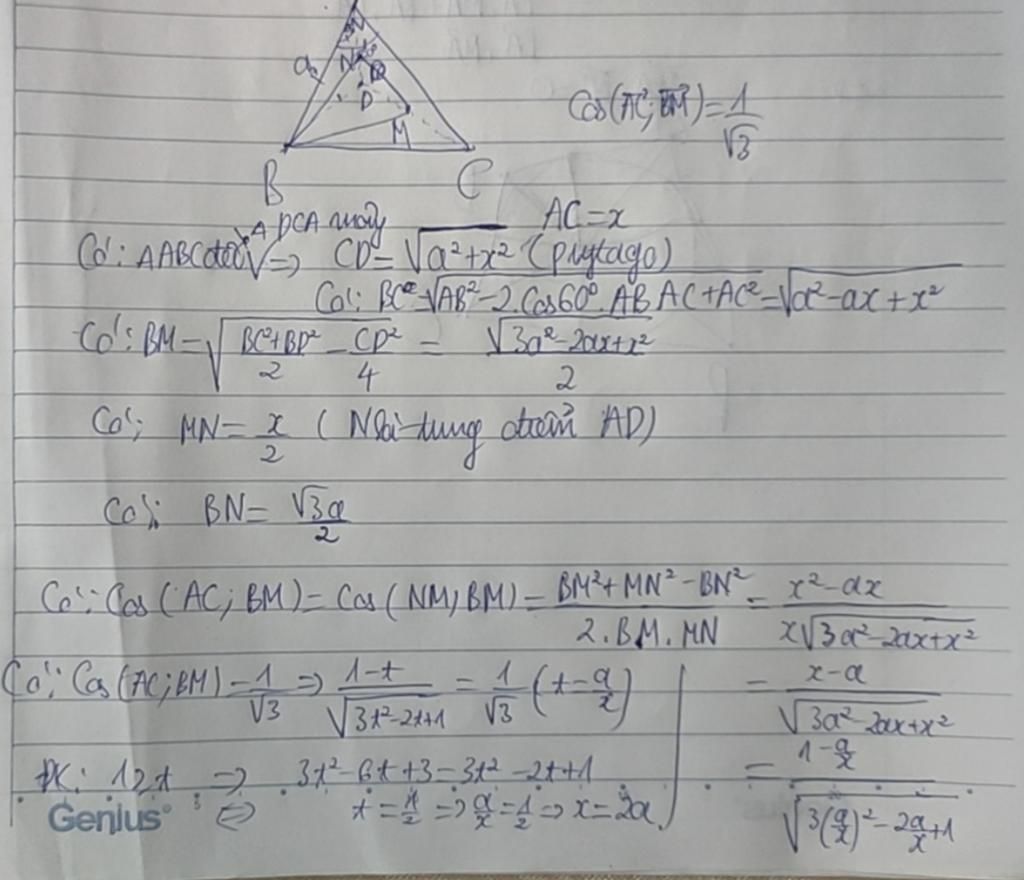 a
N
D
M
B C
Cos(AC; BM) = 1/√3
AC = x
Có: ΔABC đều, ΔDCA vuông ⇒ CD = √(a²+x²) (pytago)
Có: BC = √(AB² - 2.Cos60°.AB.AC + AC²) = √(a² - ax + x²)
Có: BM = √((BC²+BD²)/2 - CD²/4) = √(3a²-2ax+x²)/2
Có: MN = x/2 (N là trung điểm AD)
Có: BN = √3a/2
Có: Cos(AC; BM) = Cos(NM; BM) = (BM²+MN²-BN²)/(2.BM.MN) = (x²-ax)/(x√(3a²-2ax+x²))
= (x-a)/√(3a²-2ax+x²)
= (1-a/x)/√(3(a/x)²-2a/x+1)
Có: Cos(AC; BM) = 1/√3 ⇒ (1-t)/√(3t²-2t+1) = 1/√3 (t = a/x)
ĐK: 1≥t ⇒ 3t²-6t+3 = 3t²-2t+1
⇔ t = 1/2 ⇒ a/x = 1/2 ⇒ x = 2a
Genius